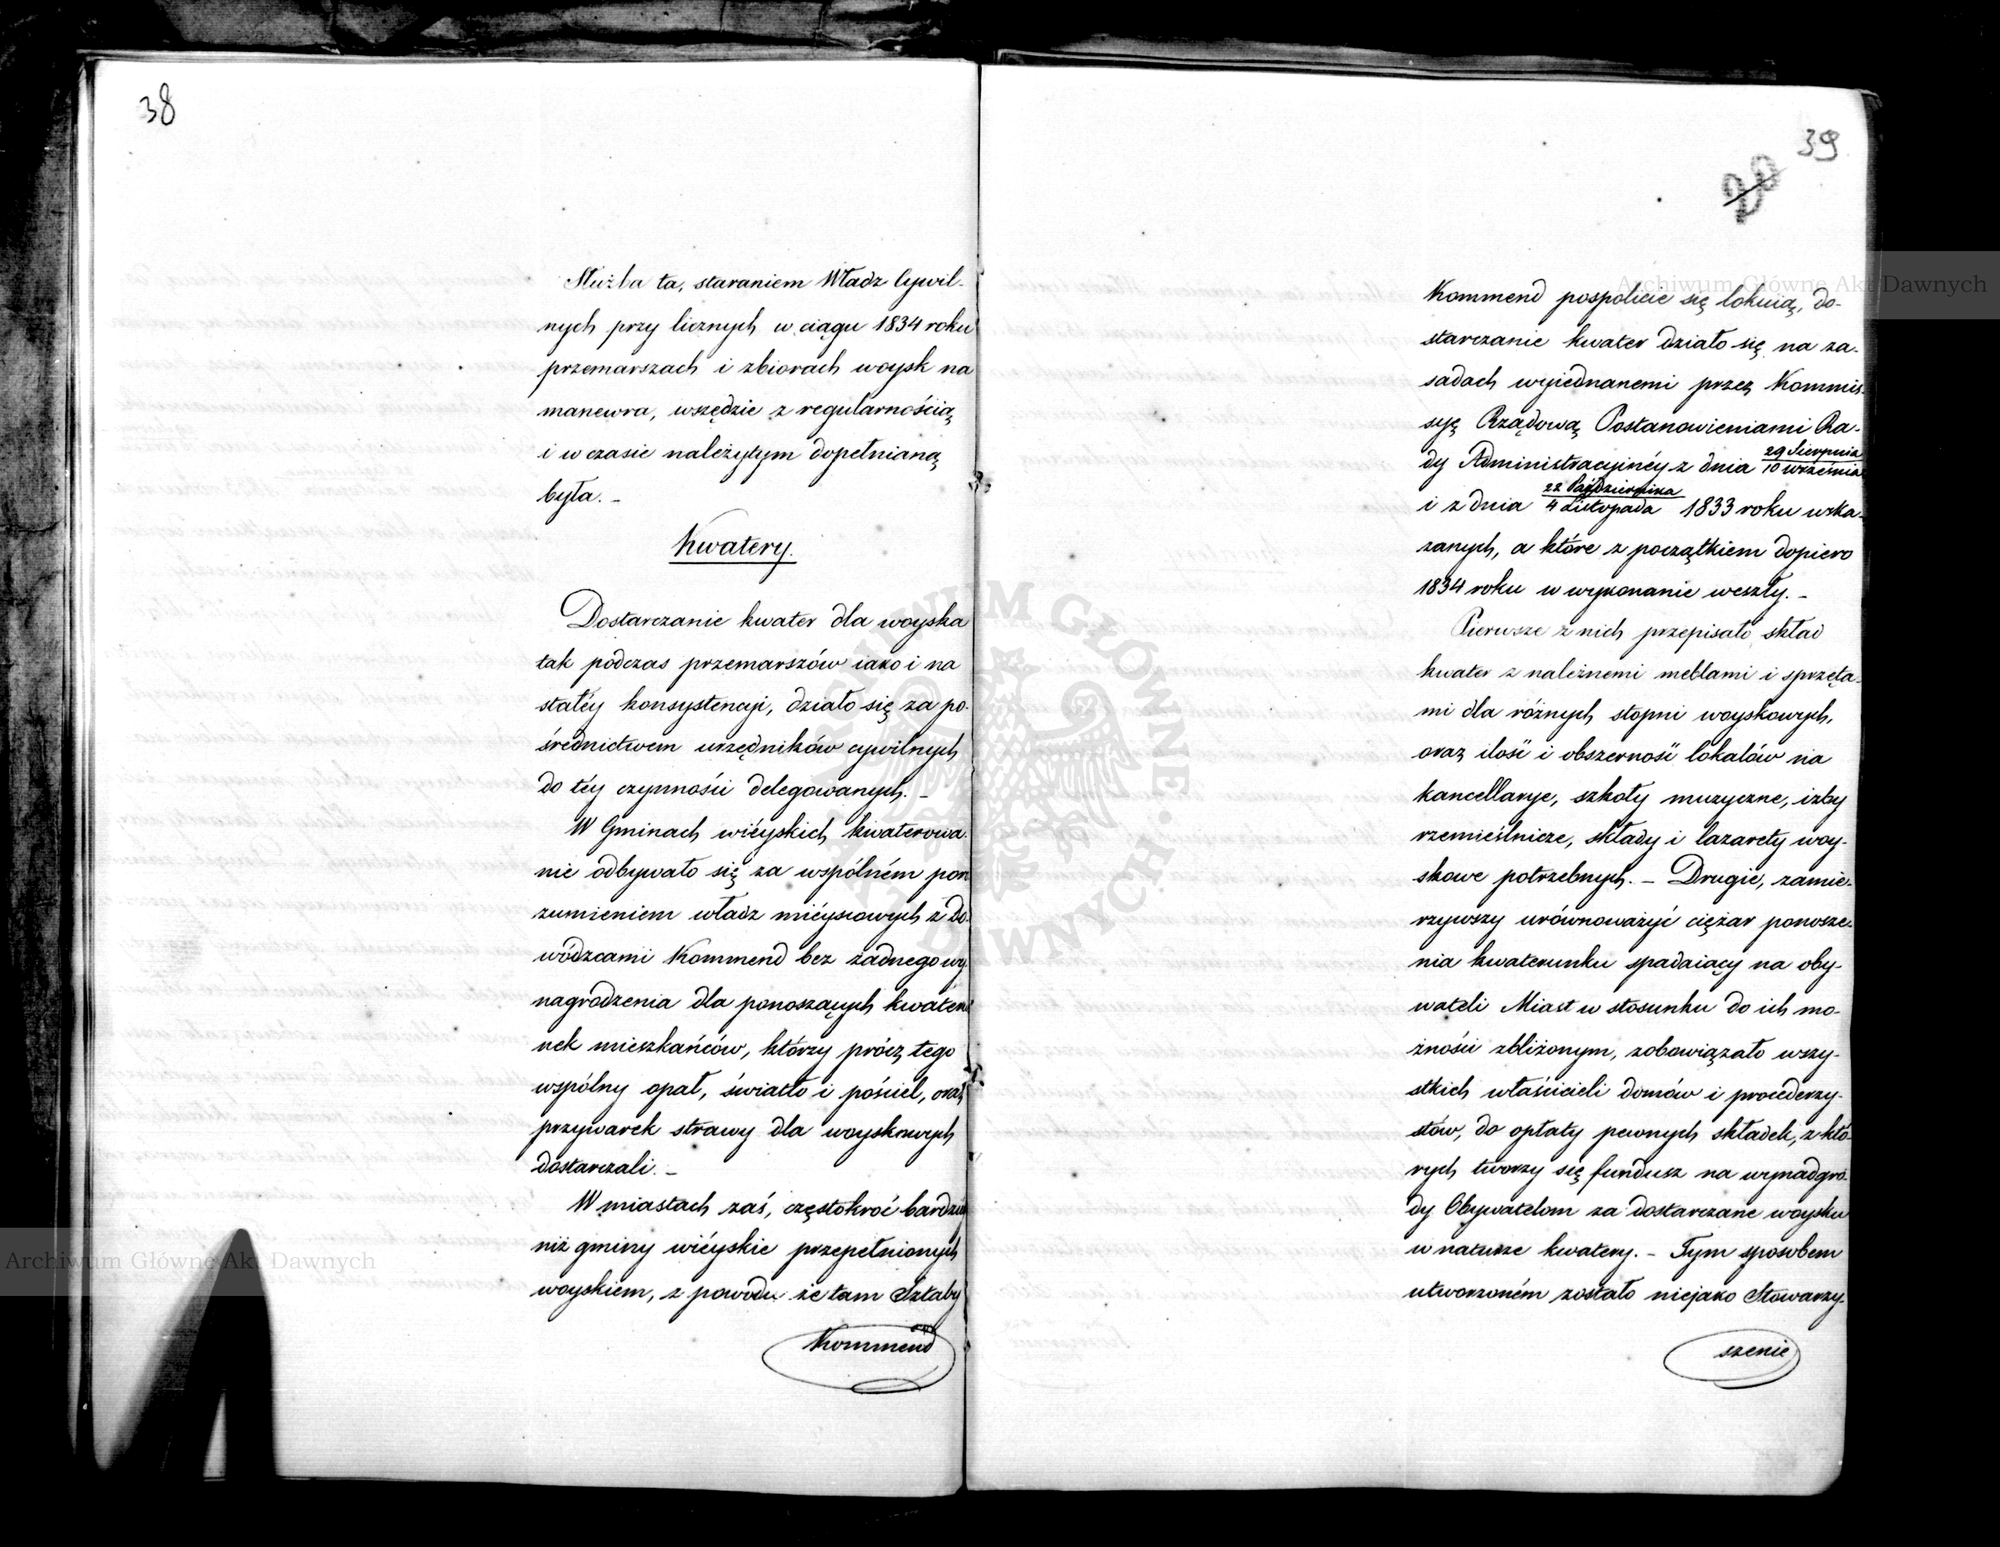 38
Służba ta, staraniem Władz Cywil-
nych przy licznych w ciągu 1834 roku
przemarszach i zbiorach woysk na
manewra, wszędzie z regularnością
i w czasie należytym dopełnianą
była. –
Kwatery.
Dostarczanie kwater dla woyska
tak podczas przemarszów iako i na
stałéy konsystencyi, działo się za po-
średnictwem urzędników cywilnych
do téy czynności delegowanych. –
W Gminach wiéyskich kwaterowa-
nie odbywało się za wspólném poro
zumieniem władz miéyscowych z Do-
wódzcami Kommend bez żadnego wy-
nagrodzenia dla ponoszących kwateru
nek mieszkańców, którzy prócz tego
wspólny opał, światło i pościel, oraz
przywarek strawy dla woyskowych
dostarczali. –
W miastach zaś, częstokroć bardziéy
niż gminy wiéyskie przepełnionych
woyskiem, z powodu że tam Sztaby
Kommend
39
Kommend pospolicie się lokuią, do-
starczanie kwater działo się na za-
sadach wyiednanemi przez Kommis-
syę Rządową Postanowieniami Ra-
dy Administracyinéy z dnia 29 Sierpnia / 10 Września
i z dnia 22 Października / 4 Listopada 1833 roku wska-
zanych, a które z początkiem dopiero
1834 roku w wykonanie weszły. –
Pierwsze z nich przepisało skład
kwater z należnemi meblami i sprzęta-
mi dla różnych stopni woyskowych,
oraz ilość i obszerność lokalów na
kancellarye, szkoły muzyczne, izby
rzemieślnicze, składy i lazarety woy-
skowe potrzebnych. – Drugie, zamie-
rzywszy urównoważyć ciężar ponosze-
nia kwaterunku spadaiący na oby-
wateli Miast w stosunku do ich mo-
żności zbliżonym, zobowiązało wszy-
stkich właścicieli domów i procederzy-
stów, do opłaty pewnych składek, z któ-
rych tworzy się fundusz na wynadgro-
dy Obywatelom za dostarczane woysku
w naturze kwatery. – Tym sposobem
utworzoném zostało niejako Stowarzy-
szenie
Archiwum Główne Akt Dawnych
Archiwum Główne Akt Dawnych
ARCHIWUM GŁÓWNE AKT DAWNYCH